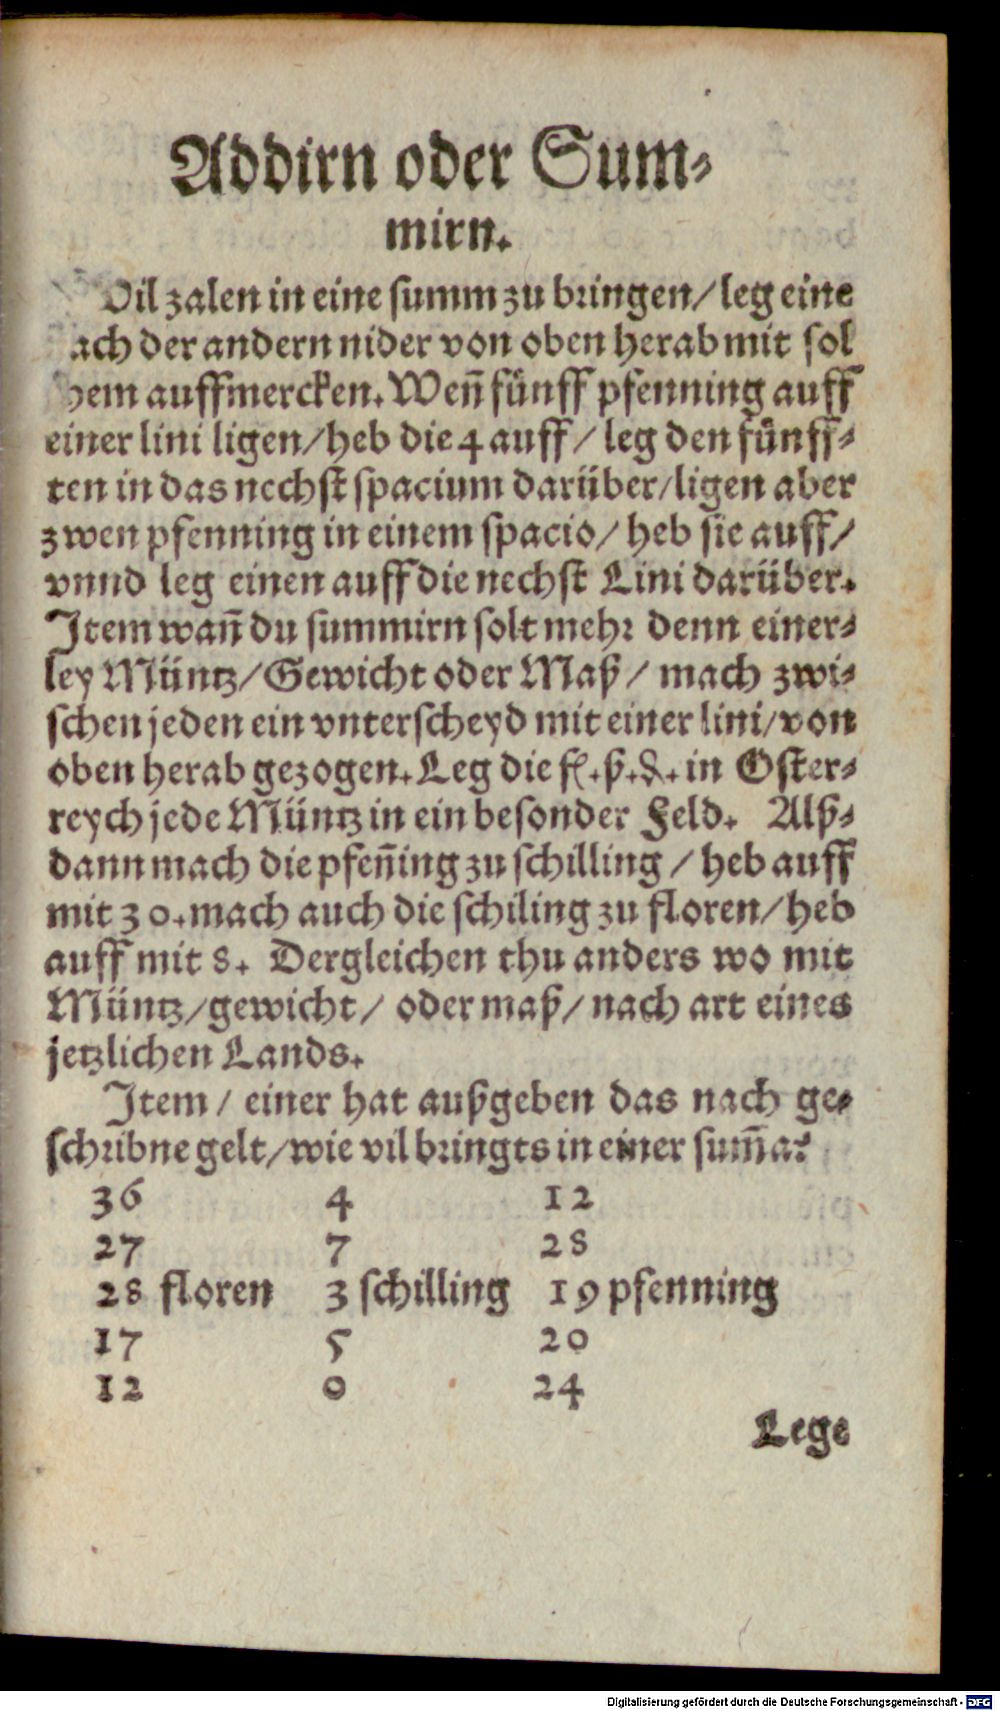 Addirn oder Sum⸗
mirn.
Vil zalen in eine summ zu bringen/ leg eine
ach der andern nider von oben herab mit sol
hem auffmercken. Weñ fünff pfenning auff
einer lini ligen/ heb die 4 auff/ leg den fünff⸗
ten in das nechst spacium darüber/ ligen aber
zwen pfenning in einem spacio/ heb sie auff/
vnnd leg einen auff die nechst Lini darüber.
Item wañ du summirn solt mehr denn einer⸗
ley Müntz/ Gewicht oder Maß/ mach zwi⸗
schen jeden ein vnterscheyd mit einer lini/ von
oben herab gezogen. Leg die fl. ß. ₰. in Oster⸗
reych jede Müntz in ein besonder Feld. Alß⸗
dann mach die pfeñing zu schilling/ heb auff
mit 30. mach auch die schiling zu floren/ heb
auff mit 8. Dergleichen thu anders wo mit
Müntz/ gewicht/ oder maß/ nach art eines
jetzlichen Lands.
Item/ einer hat außgeben das nach ge⸗
schribne gelt/ wie vil bringts in einer sum̃a?
36 4 12
27 7 28
28 floren 3 schilling 19 pfenning
17 5 20
12 0 24
Lege
Digitalisierung gefördert durch die Deutsche Forschungsgemeinschaft - DFG